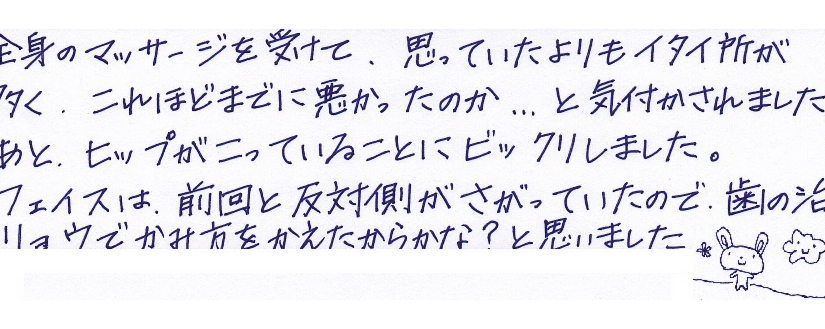 全身のマッサージを受けて、思っていたよりもイタイ所が
多く、これほどまでに悪かったのか…と気付かされました
あと、ヒップがこっていることにビックリしました。
フェイスは、前回と反対側がさがっていたので、歯の治
リョウでかみ方をかえたからかな？と思いました